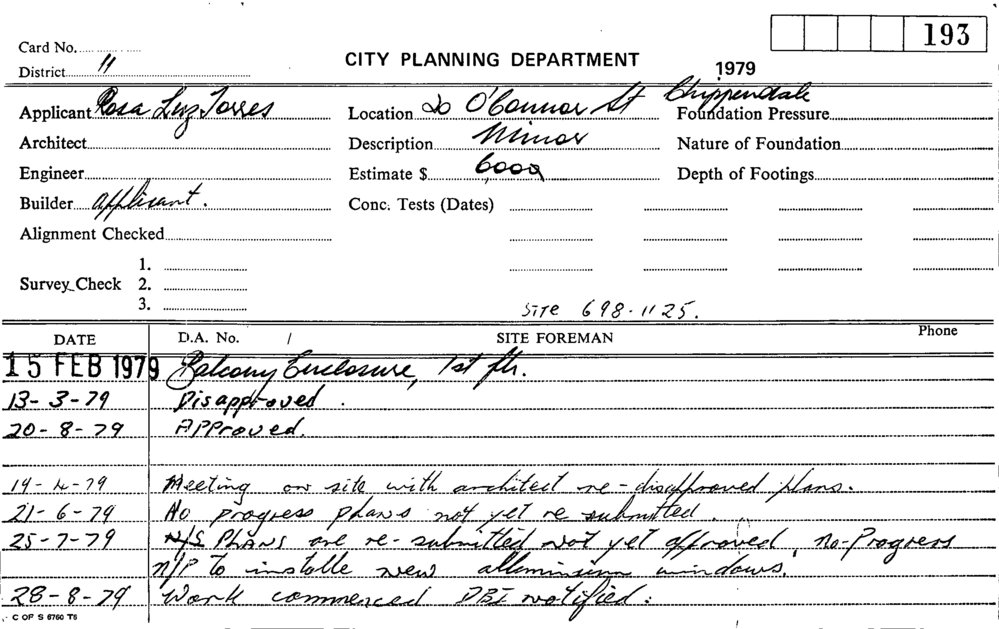 193
Card No.
CITY PLANNING DEPARTMENT
District 11
1979
Applicant Rosa Luz Torres
Location 20 O'Connor St Chippendale
Foundation Pressure
Architect
Description Minor
Nature of Foundation
Engineer
Estimate $ 6000
Depth of Footings
Builder applicant.
Conc. Tests (Dates)
Alignment Checked
1.
Survey Check 2.
3.
SITE 698-1125.
DATE D.A. No. / SITE FOREMAN Phone
15 FEB 1979 Balcony Enclosure, 1st flr.
13-3-79 Disapproved.
20-8-79 APProved.
19-4-79 Meeting on site with architect re-disapproved plans.
21-6-79 No progress plans not yet re submitted.
25-7-79 N/S PLANS are re-submitted not yet approved, no-Progress
N/P to installe new alluminium windows.
28-8-79 Work commenced DBI notified.
C OF S 6760 T6